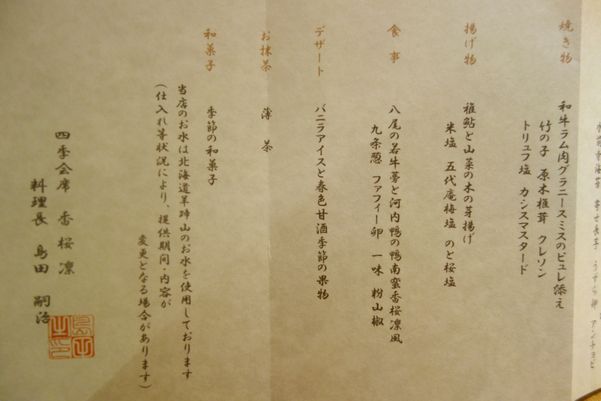 焼き物
和牛ラム肉グラニースミスのピュレ添え
竹の子 原木椎茸 クレソン
トリュフ塩 カシスマスタード
揚げ物
稚鮎と山菜の木の芽揚げ
米塩 五代庵梅塩 のと桜塩
食事
八尾の若牛蒡と河内鴨の鴨南蛮香桜凛風
九条葱 ファフィー卵 一味 粉山椒
デザート
バニラアイスと春色甘酒季節の果物
お抹茶
薄茶
和菓子
季節の和菓子
当店のお水は北海道羊蹄山のお水を使用しております
(仕入れ等状況により、提供期間・内容が
変更となる場合があります)
四季会席 香桜凛
料理長 島田 嗣治